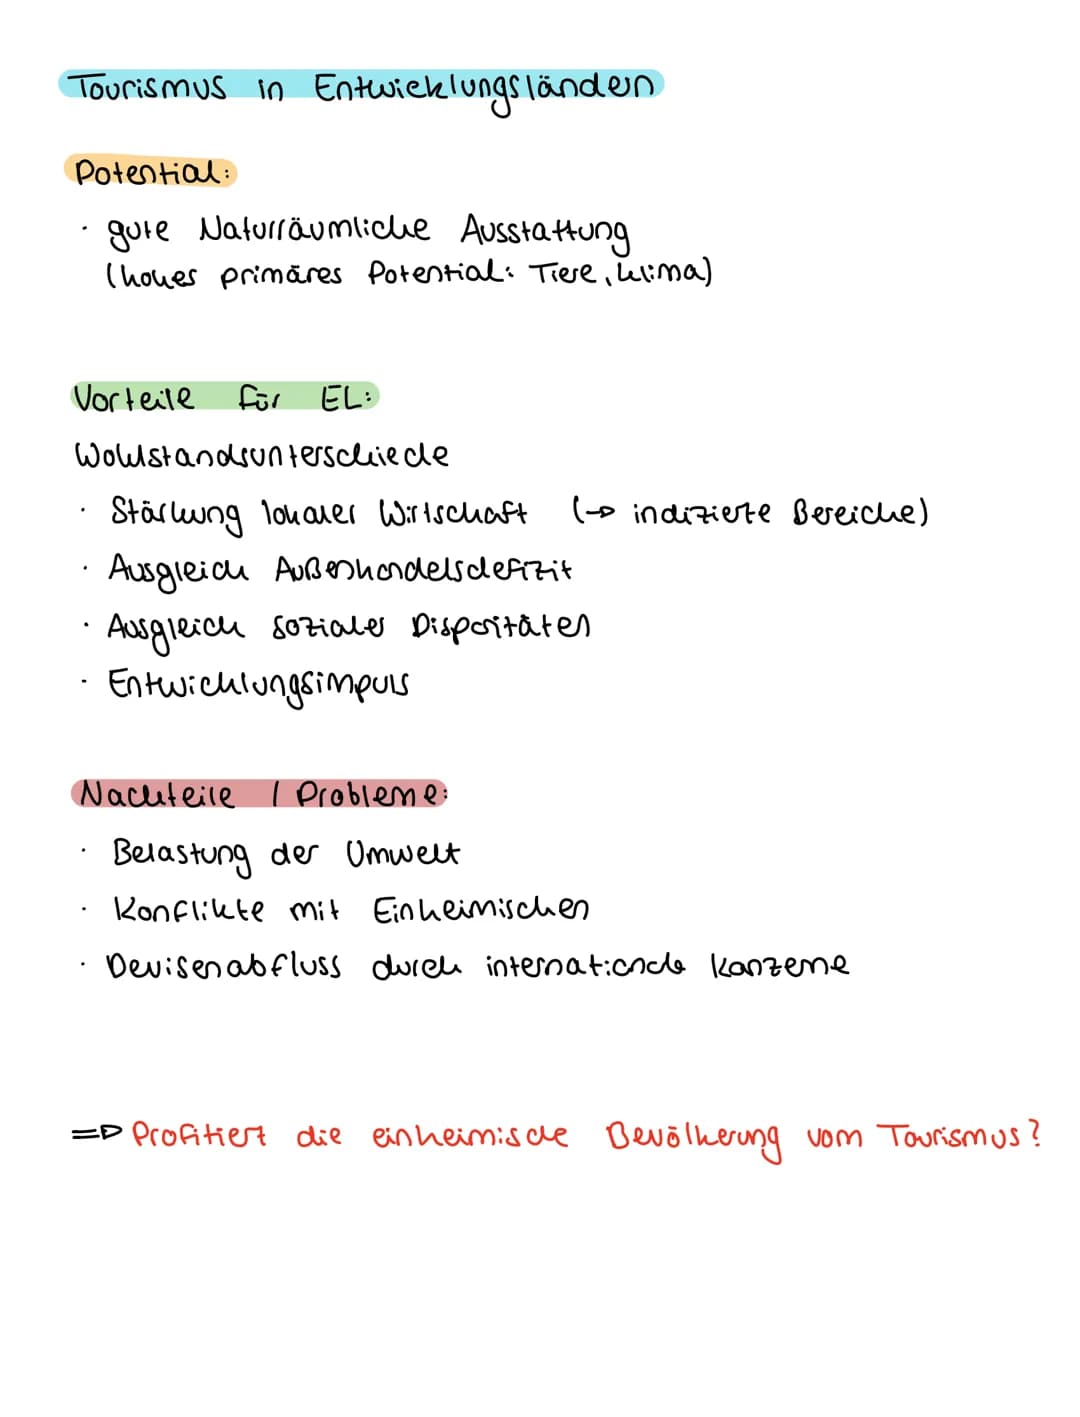 Tourismus in Entwicklungsländern
Potential:
· gute Naturräumliche Ausstattung
(hohes primäres Potential: Tiere, Klima)
Vorteile für EL:
Wohlstandsunterschiede
· Stärkung lokaler Wirtschaft (→ indizierte Bereiche)
· Ausgleich Außenhandelsdefizit
· Ausgleich sozialer Disparitäten
· Entwicklungsimpuls
Nachteile / Probleme:
· Belastung der Umwelt
· Konflikte mit Einheimischen
· Devisenabfluss durch internationale Konzerne
=> Profitiert die einheimische Bevölkerung vom Tourismus?